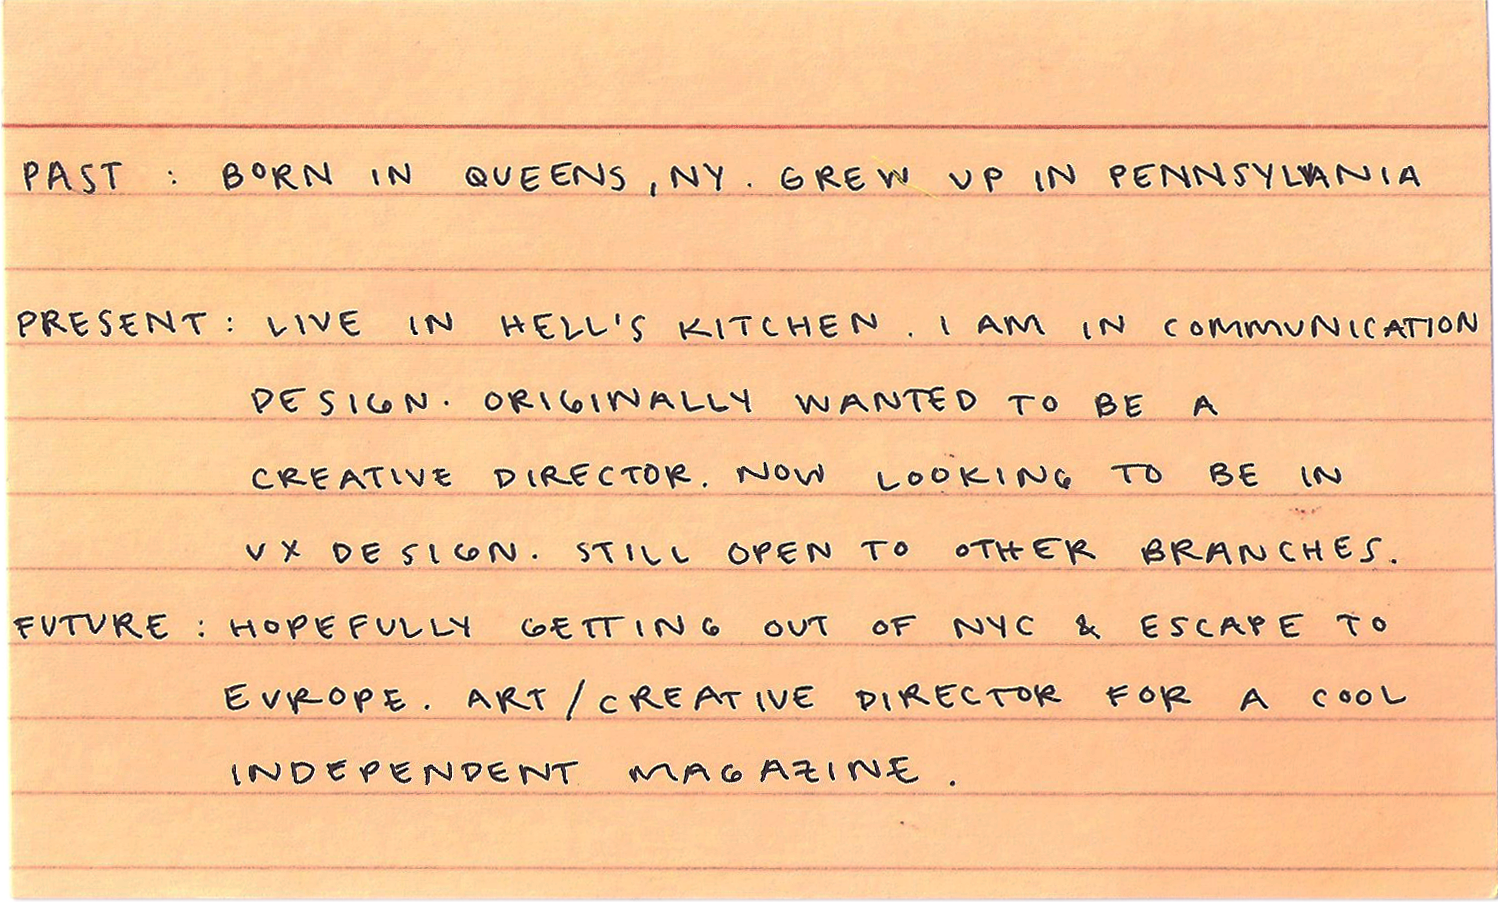 PAST : BORN IN QUEENS, NY. GREW UP IN PENNSYLVANIA
PRESENT: LIVE IN HELL'S KITCHEN. I AM IN COMMUNICATION
DESIGN. ORIGINALLY WANTED TO BE A
CREATIVE DIRECTOR. NOW LOOKING TO BE IN
UX DESIGN. STILL OPEN TO OTHER BRANCHES.
FUTURE : HOPEFULLY GETTING OUT OF NYC & ESCAPE TO
EUROPE. ART/CREATIVE DIRECTOR FOR A COOL
INDEPENDENT MAGAZINE.